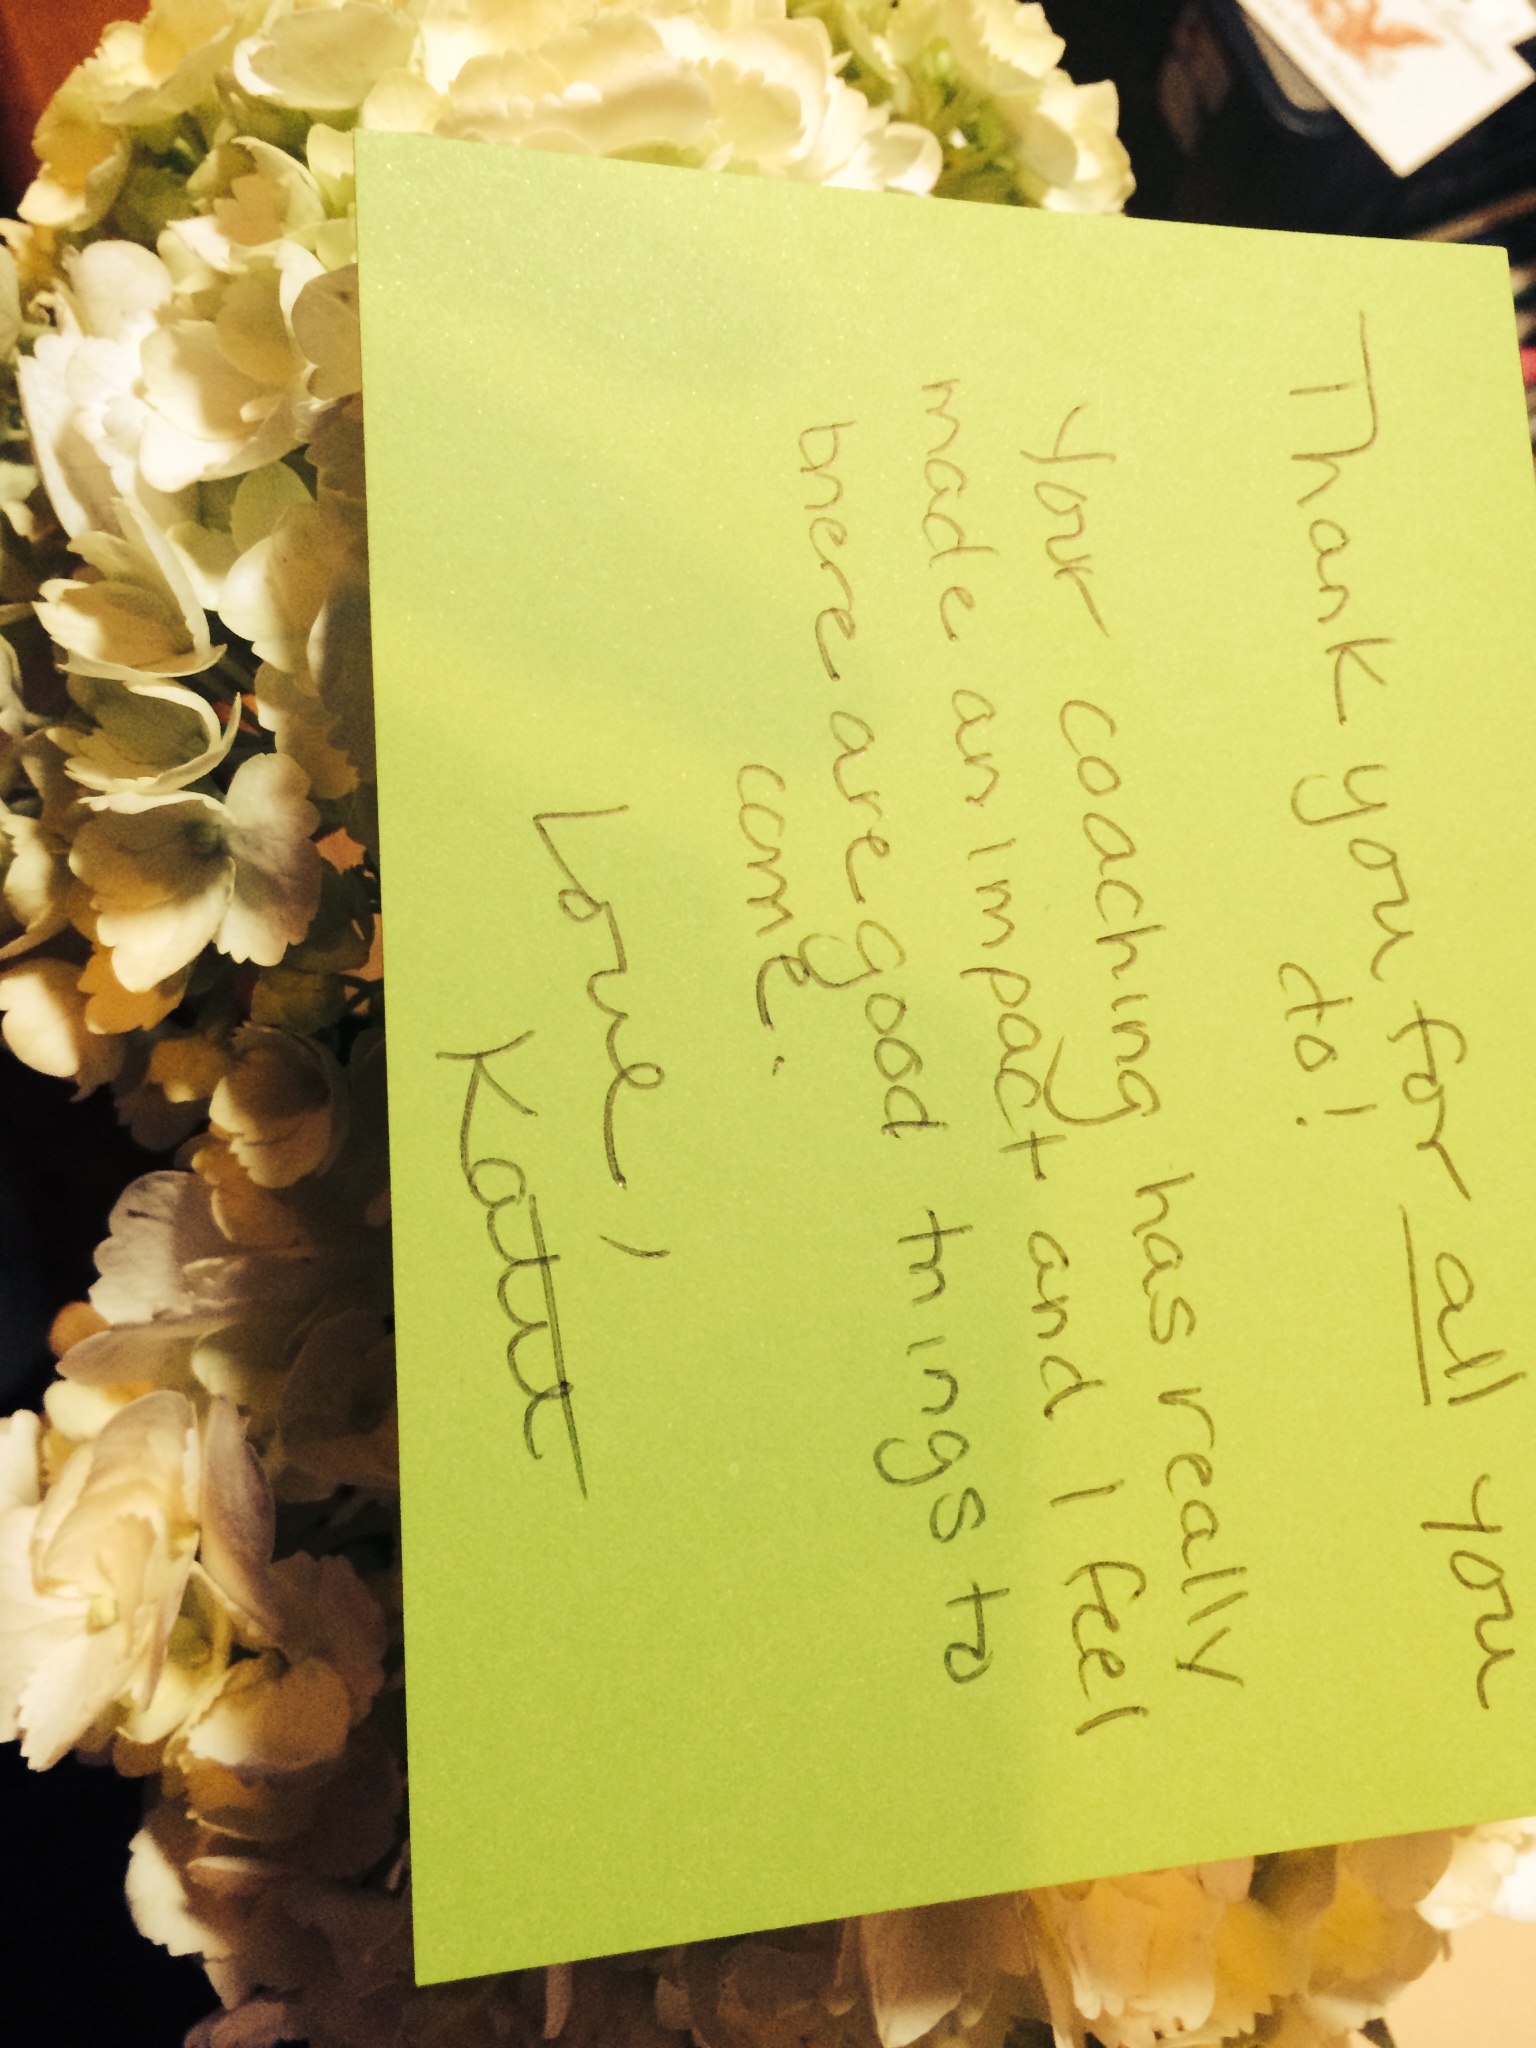 Thank you for all you
do!
Your coaching has really
made an impact and I feel
there are good things to
come.
Love,
Katie